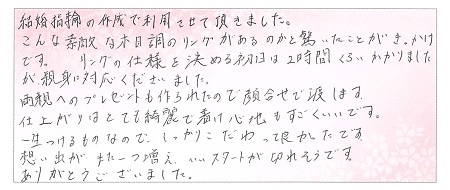 結婚指輪の作成で利用させて頂きました。
こんな素敵な木目調のリングがあるのかと驚いたことがき、かけ
です。 リングの仕様を決める初日は2時間くらいかかりました
が親身に対応くださいました。
両親へのプレゼントも作られたので顔合せで渡します。
仕上がりはとても綺麗で着け心地もすごくいいです。
一生つけるものなので、しっかりこだわって良かったです。
想い出がまた一つ増え、いいスタートが切れそうです。
ありがとうございました。